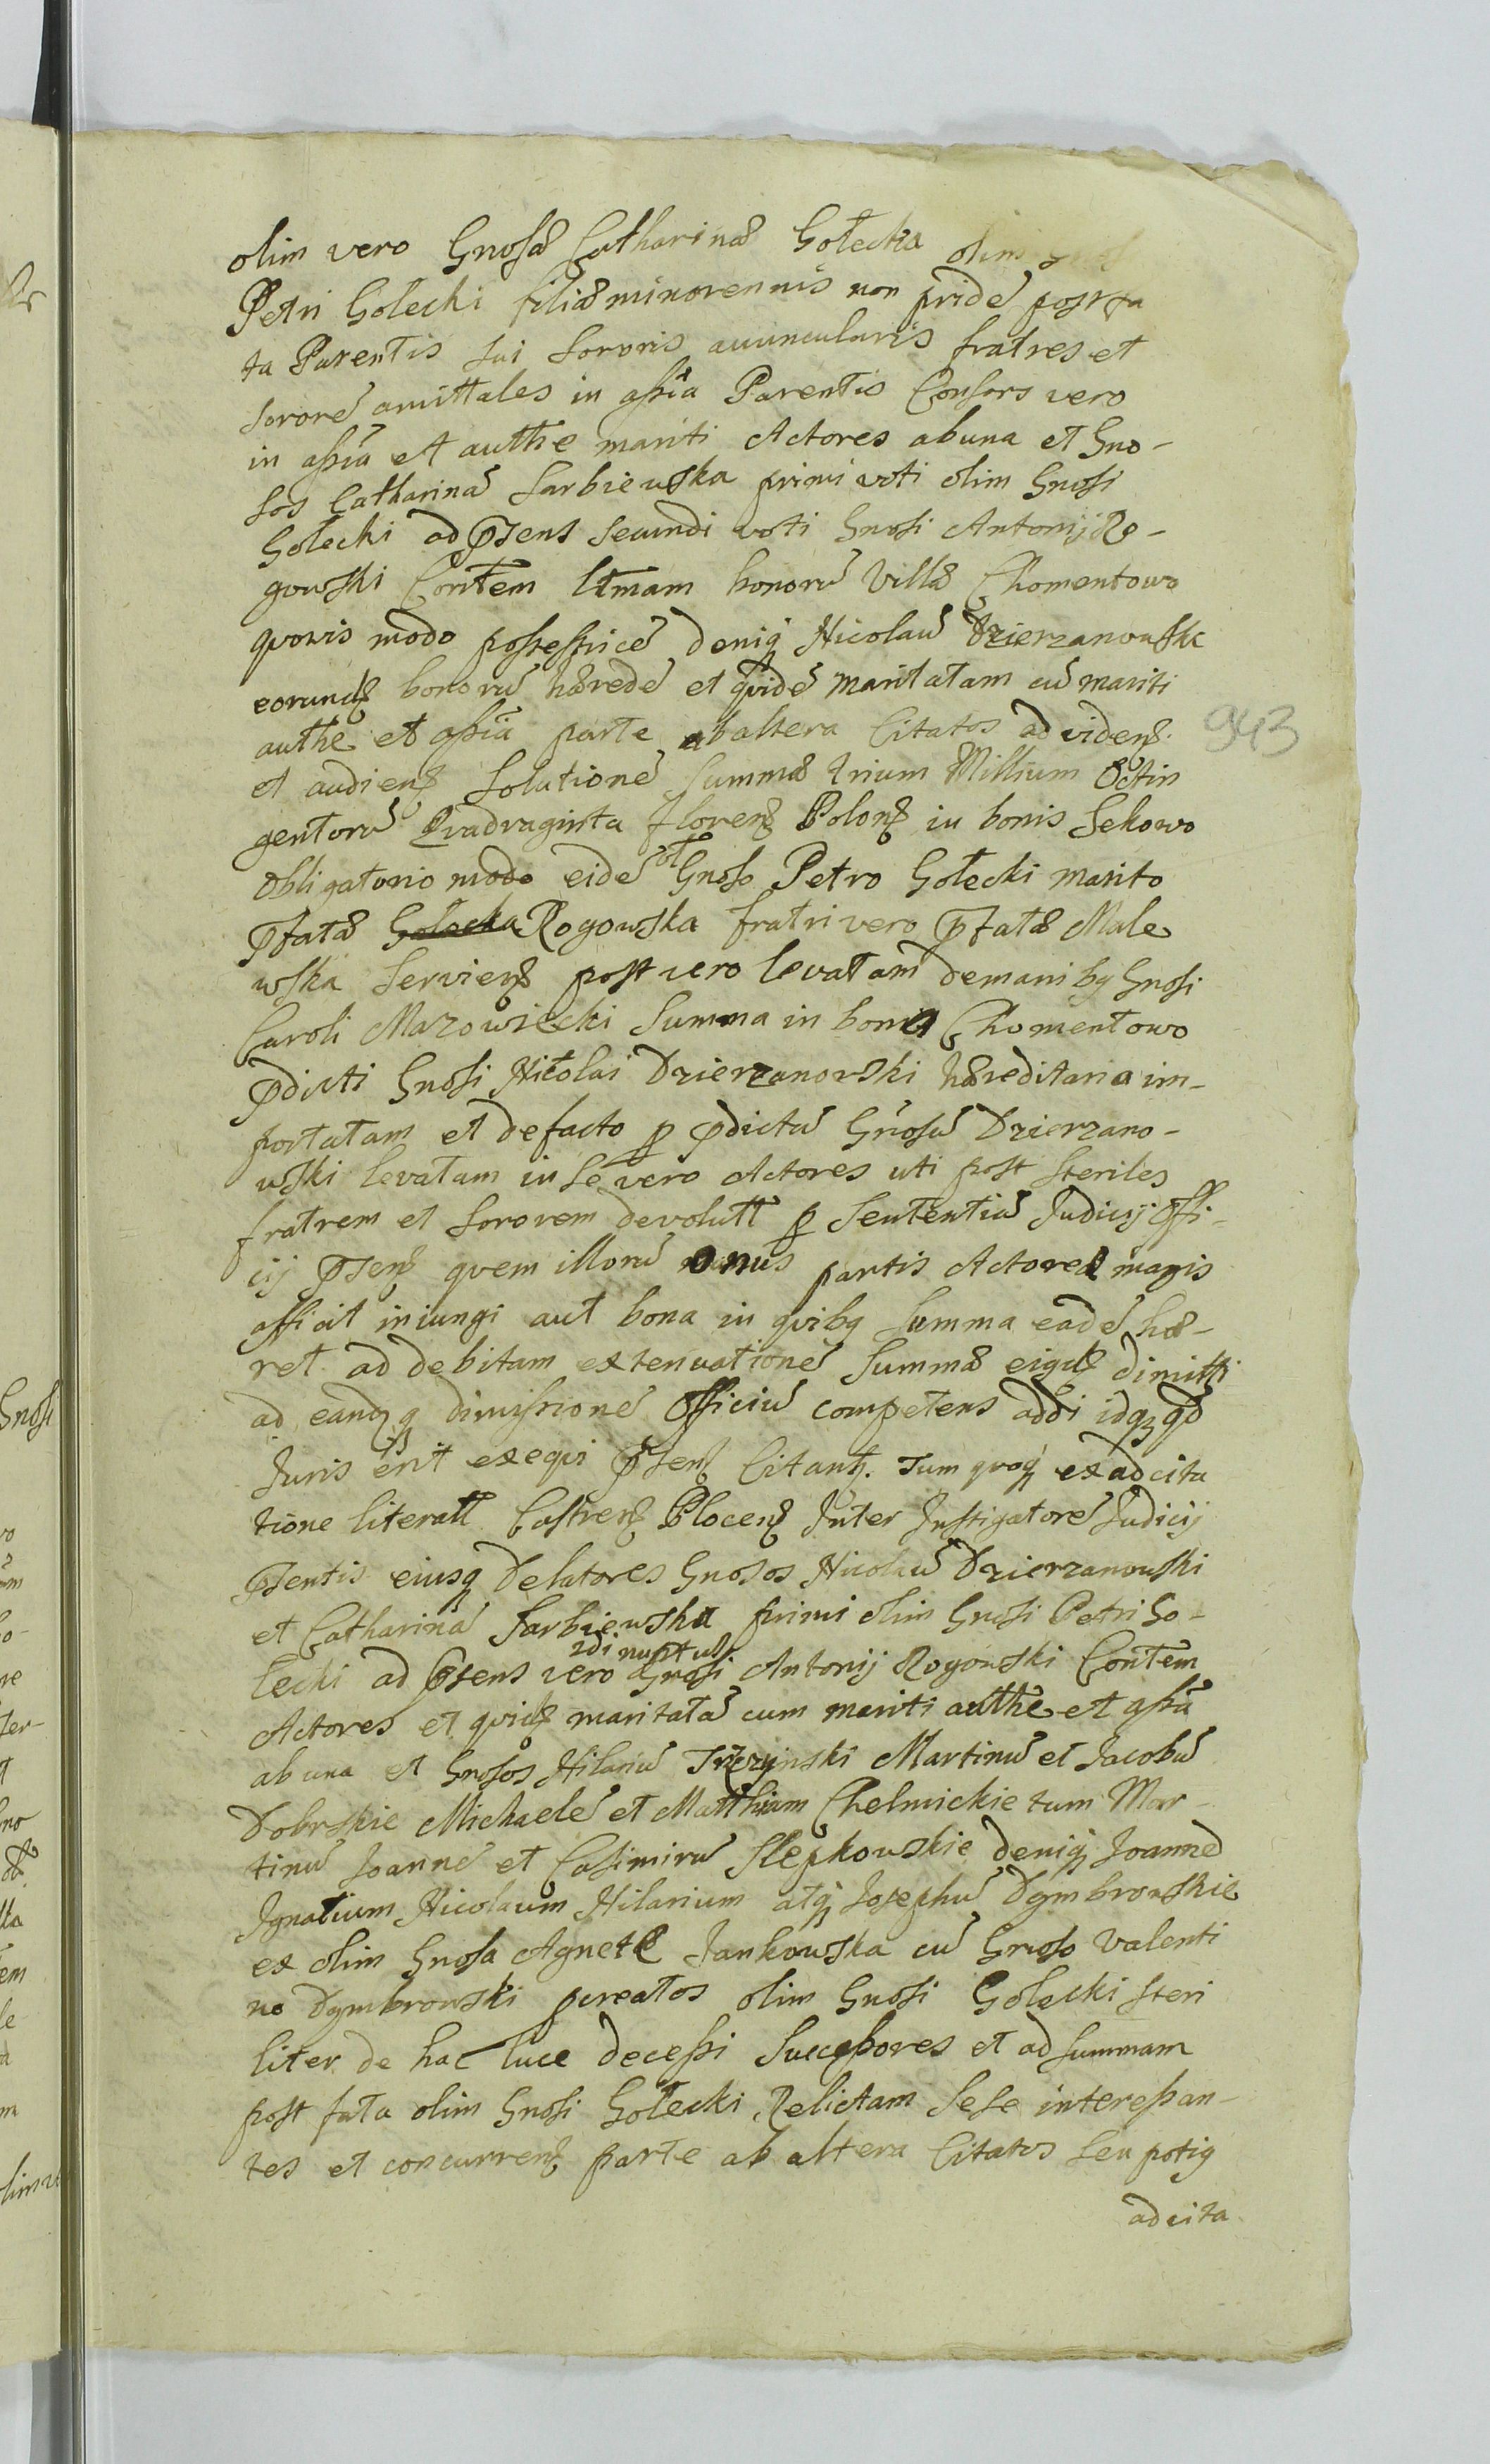 olim vero Gnosæ Catharinæ Gołecka olim
Petri Golecki filiæ minorennis non pridē post fa
ta Parentis sui Sororis avuncularis fratres et
sororē amittales in assia Parentis Consors vero
in assia et autthe mariti Actores ab una et Gno-
sos Catharinā Sarbiewska primi voti olim Gnosi
Gołecki ad pñsens secundi voti Gnosi Antonij Ro-
gowski Contem ltmam bonorū Villæ Chomentowo
qvovis modo possessricē deniq Nicolaū Dzierzanowski
eorundȝ bonorū hæredē et qvidē maritatam cū mariti
autthe et assia parte ab altera Citatos ad videnȝ
et audienȝ Solutionē Summæ trium Millium Octin
gentorū Qvadraginta florenȝ Polonȝ in bonis Sekowo
Obligatorio modo eidē ol Gnoso Petro Gołecki marito
pfatæ Golecka Rogowska fratri vero pfatæ Male
wska Servienȝ post vero levatam de manibq Gnosi
Caroli Mazowiecki Summa in bona Chomentowo
pdicti Gnosi Nicolai Dzierzanowski hæreditaria im-
portatam et de facto p pdictū Gnosū Dzierzano-
wski levatam in se vero Actores uti post steriles
fratrem et Sororem devolutt p Sententiā Judicij Offi-
cij pñsenȝ qvem illorū onus partis Actoreæ magis
afficit iniungi aut bona in qvibq Summa eadē hæ-
ret ad debitam extenuationē Summæ eiqdȝ dimitti
ad eandȝq dimissionē Officiū competens addi idqȝ qd
Juris erit exeqvi pñsenȝ Citanȝ. Tum qvoq ex adcita
tione literatt Castrenȝ Plocenȝ Inter Instigatorē Judicij
pñsentis eiusq Delatores Gnosos Nicolaū Dzierzanowski
et Catharinā Sarbiewska primi olim Gnosi Petri Go-
lecki ad pñsens vero 2di nuptus Gnosi Antonij Rogowski Contem
Actores et qvidȝ maritatā cum mariti autthe et assia
ab una et Gnosos Hilariū Trzczynski Martinū et Jacobū
Dobrskie Michaelē et Matthiam Chelmickie tum Mar-
tinū Joannē et Casimirū Slepkowskie deniq Joannē
Ignatium Nicolaum Hilarium atq Josephū Dymbrowskie
ex olim Gnosa Agnete Jankowska cū Gnoso Valenti
no Dymbrowski pcreatos olim Gnosi Golecki steri
liter de hac luce decessi Successores et ad summam
post fata olim Gnosi Gołecki Relictam sese interessan-
tes et concurrenȝ parte ab altera Citatos seu potiq
adcita
943